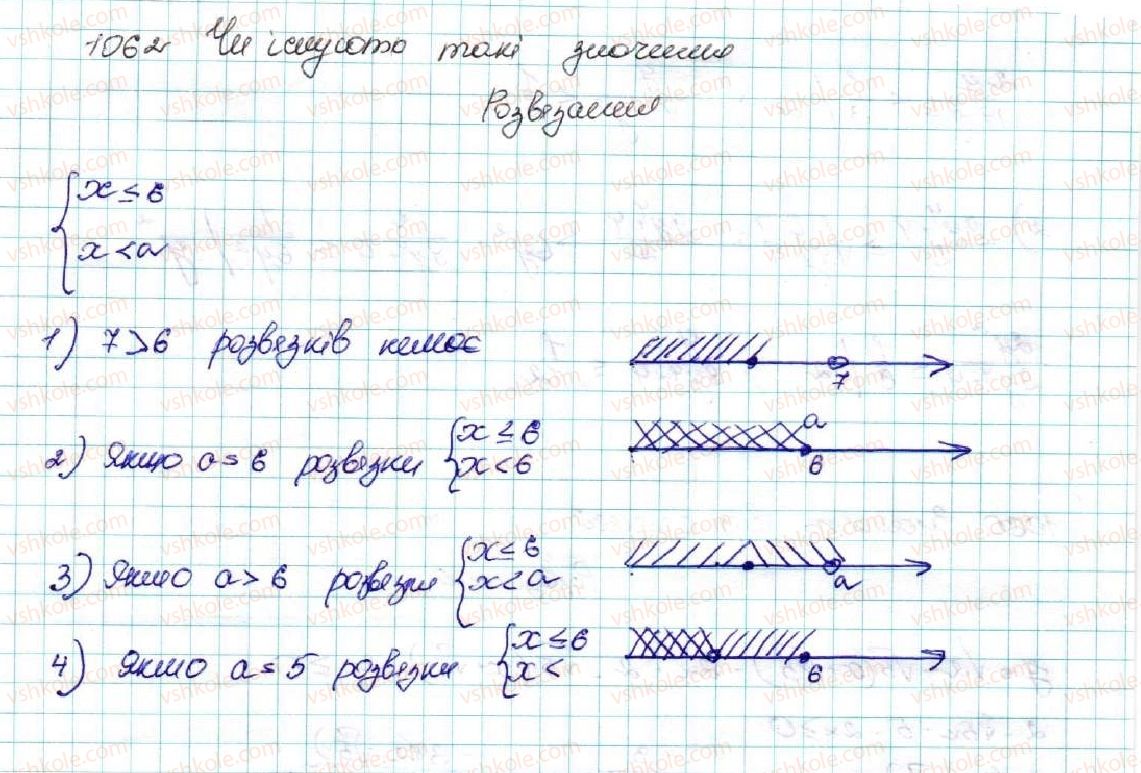 1062 Чи існують такі значення
Розвязання
x ≤ 6
x < a
1) 7>6 розвязків немає
7
2) Якщо a = 6 розвязки { x ≤ 6
x < 6
a
6
3) Якщо a > 6 розвязки { x ≤ 6
x < a
a
4) Якщо a = 5 розвязки { x ≤ 6
x <
6
vshkole.com